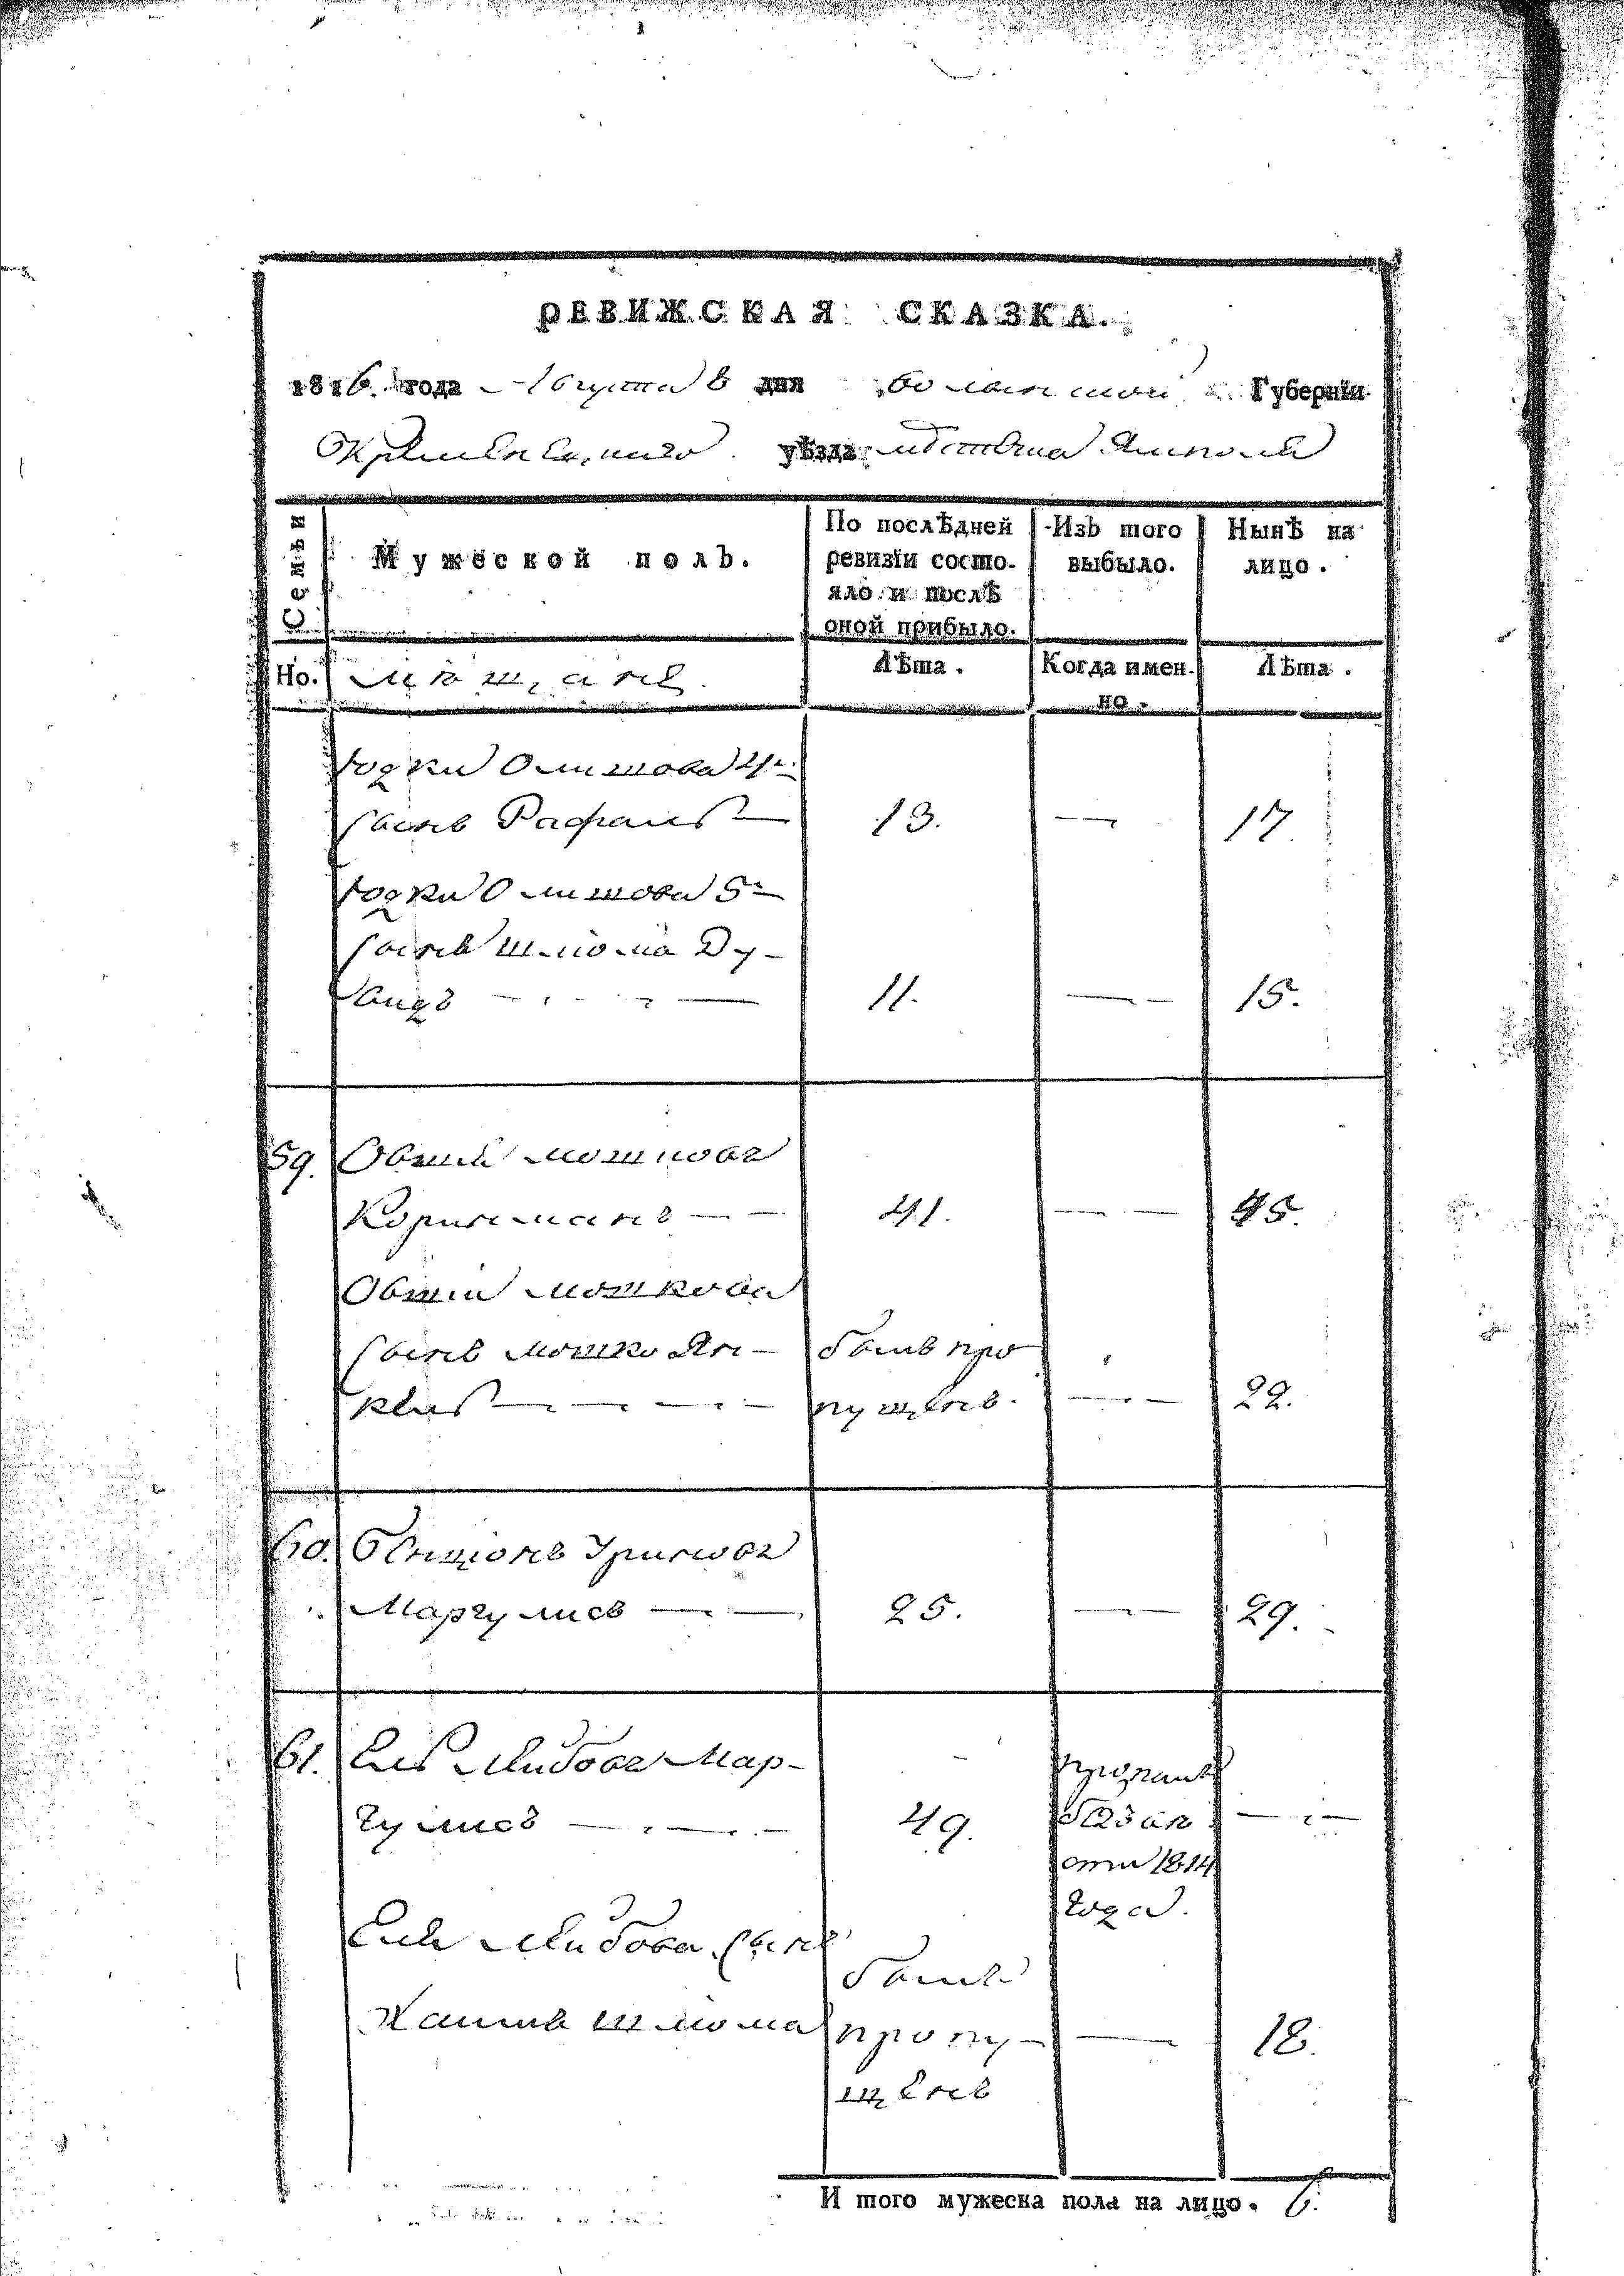 РЕВИЖСКАЯ СКАЗКА.
1816. года Августа 8 дня Волынской Губерніи
Кременецкаго уѣзда мѣстечка Ямполя
Семьи
Мужеской полъ.
По послѣдней ревизіи состояло и послѣ оной прибыло.
Изъ того выбыло.
Нынѣ на лицо.
Но. мѣщане
Лѣта.
Когда имен.но.
Лѣта.
Юдки Олимова 4й
сынъ Рафаилъ — 13. — 17.
Юдки Олимова 5й
сынъ Шлиома Ду-
видъ — 11. — 15.
59. Овшій Мошковъ
Коринманъ — 41. — 45.
Овшія Мошкова
сынъ Мошко Ян- былъ про
кель — пущенъ. — 22.
60. Бенціонъ Уриновъ
Маргулисъ — 25. — 29.
61. Ель Лейбовъ Мар-
гулисъ — 49. —
1814
года.
Еля Лейбова сынъ былъ
Хаимъ Шлиома пропу- — 18.
щенъ
И того мужеска пола на лицо. 6.